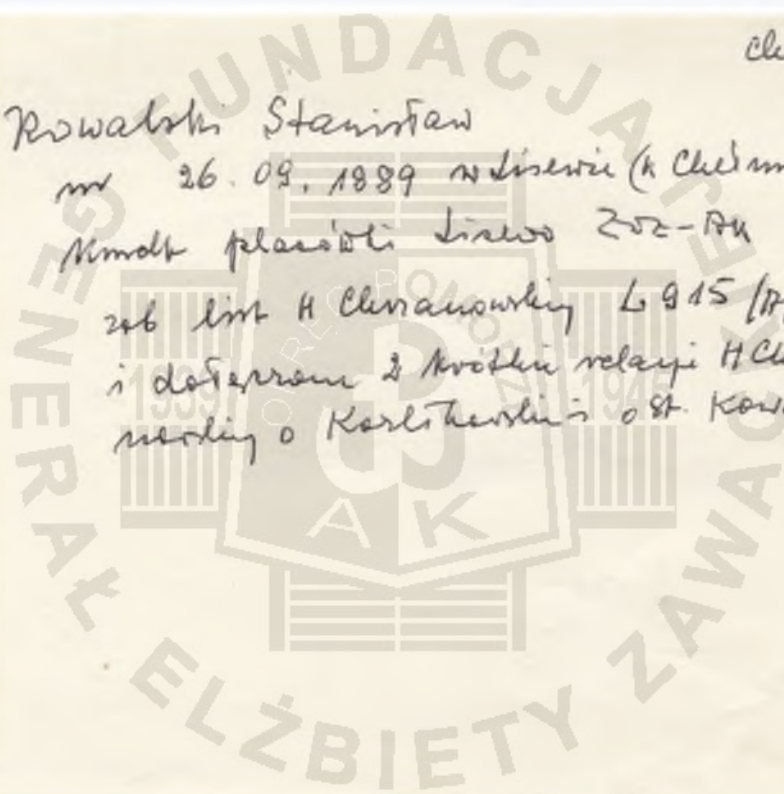 Kowalski Stanisław
ur 26.09.1889 w Lisewie (k Chełmn
Kmdt placówki Lisewo ZWZ-AK
zob list H Chrzanowskiej L 915/
i dołączone 2 krótkie relacje H Ch
nowskiej o i o St. Kow
FUNDACJA GENERAŁ ELŻBIETY ZAWAC
1939 1945
AK